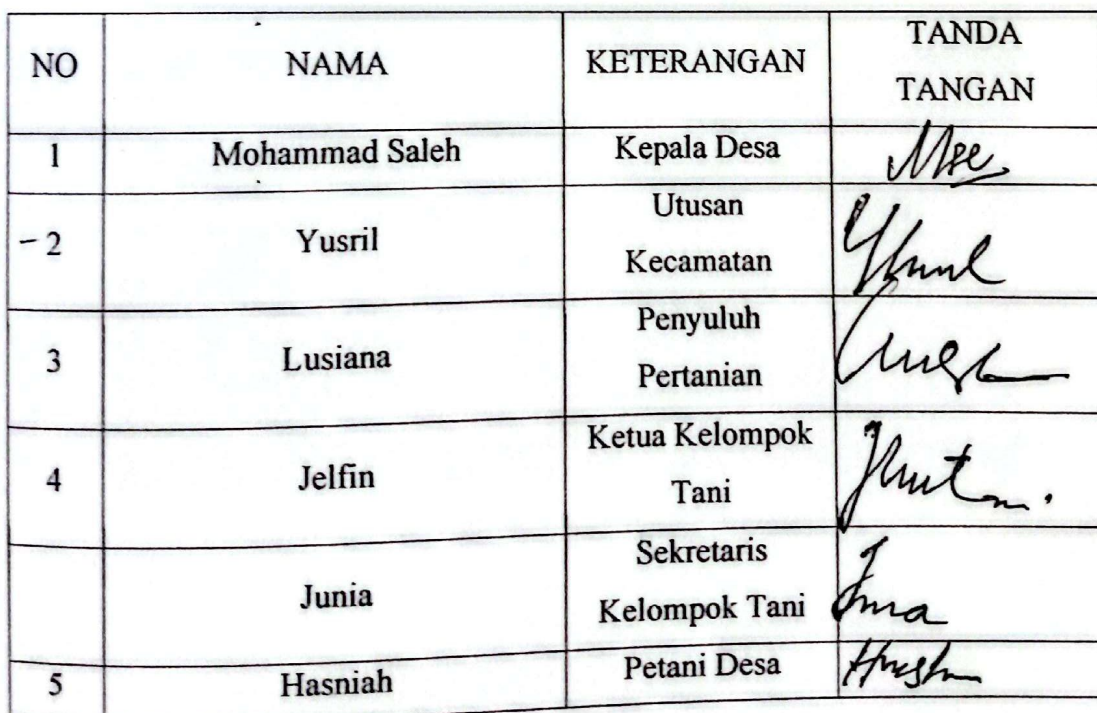 NO NAMA KETERANGAN TANDA
TANGAN
1 Mohammad Saleh Kepala Desa
- 2 Yusril Utusan
Kecamatan
3 Lusiana Penyuluh
Pertanian
4 Jelfin Ketua Kelompok
Tani
Junia Sekretaris
Kelompok Tani
5 Hasniah Petani Desa